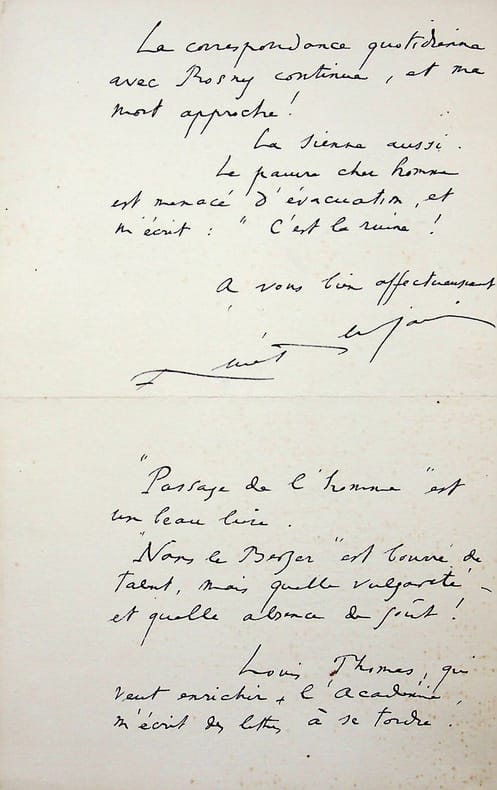 La correspondance quotidienne
avec Rosny continue, et ma
mort approche !
La sienne aussi.
Le pauvre cher homme
est menacé d'évacuation, et
m'écrit : " C'est la ruine !
A vous bien affectueusement
"Passage de l'homme" est
un beau livre.
"Nans le Berger" est bourré de
talent, mais quelle vulgarité –
et quelle absence de goût !
Louis Thomas, qui
veut enrichir l'Académie,
m'écrit des lettres à se tordre.